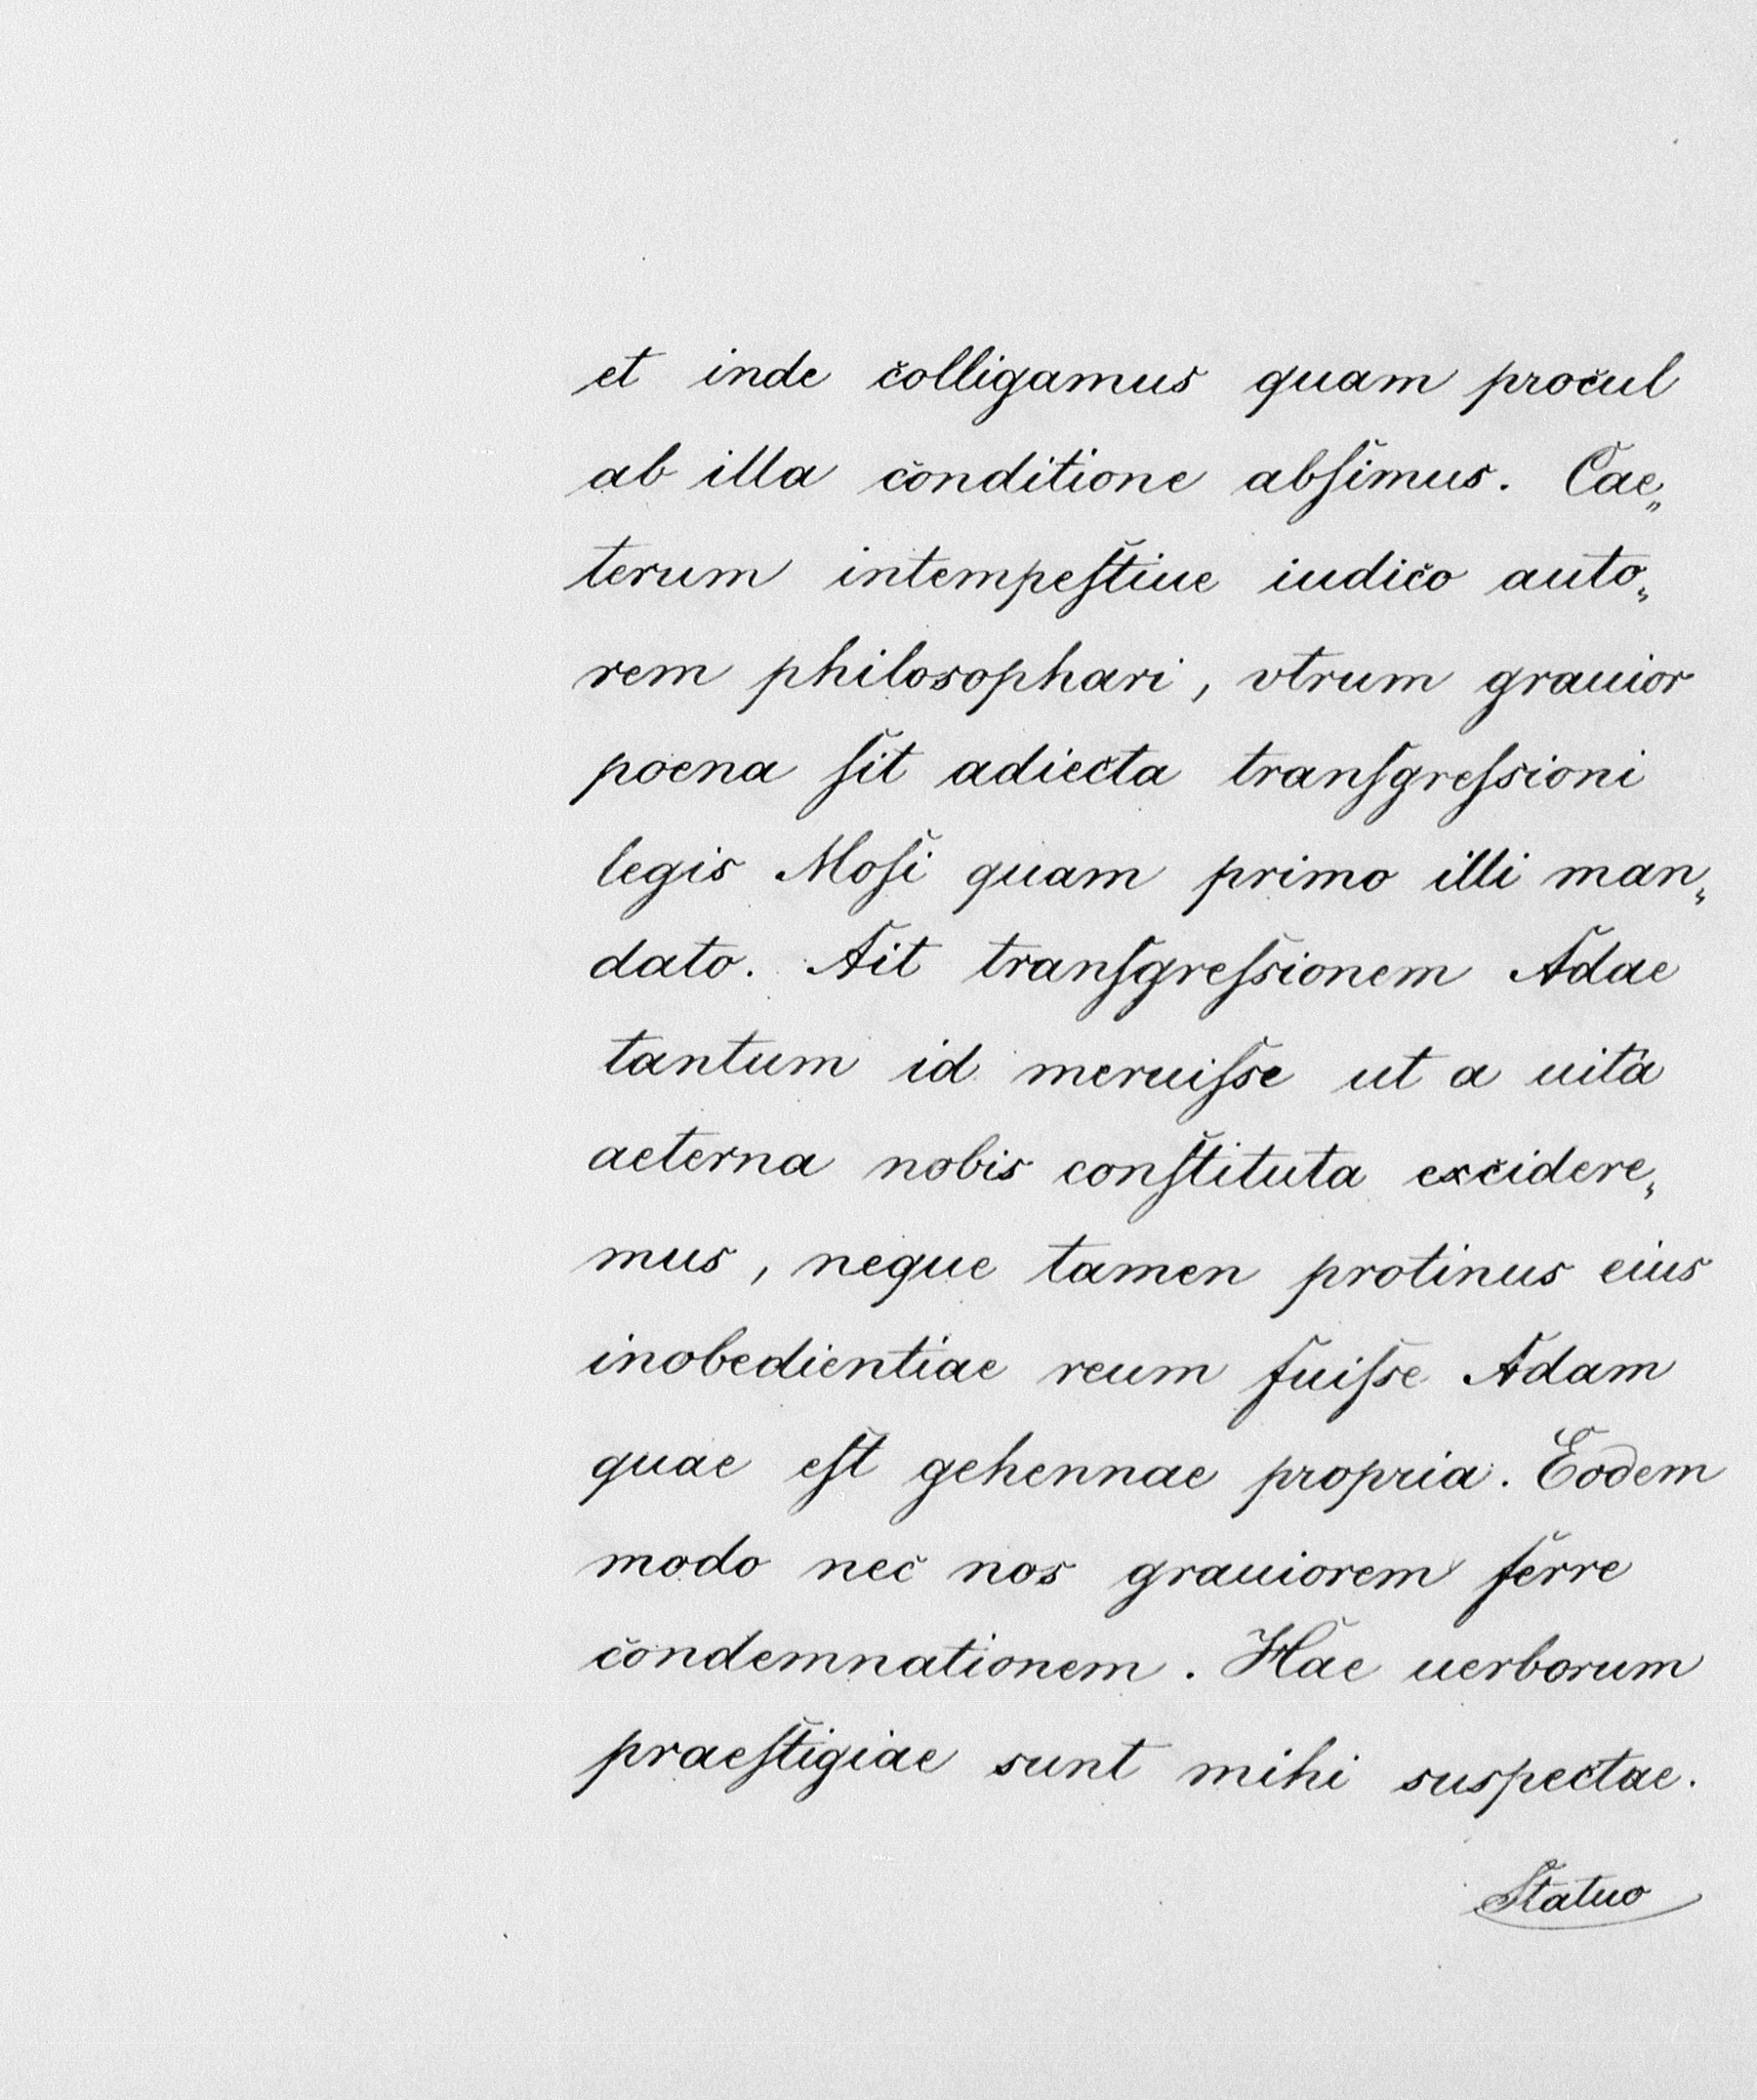 et inde colligamus quam procul
ab illa conditione abſimus. Cae„
terum intempeſtiue iudico auto„
rem philosophari, vtrum grauior
poena ſit adiecta tranſgreſsioni
legis Moſi quam primo illi man„
dato. Ait tranſgreſsionem Adae
tantum id meruiſse ut a uita
aeterna nobis conſtituta excidere„
mus, neque tamen protinus eius
inobedientiae reum fuiſse Adam
quae eſt gehennae propria. Eodem
modo nec nos grauiorem ferre
condemnationem. Hae uerborum
praeſtigiae sunt mihi suspectae.
Statuo